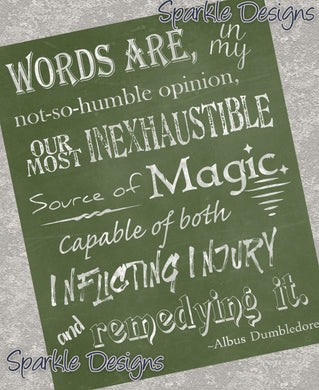 Sparkle Designs
WORDS ARE, in my
not-so-humble opinion,
OUR MOST INEXHAUSTIBLE
Source of Magic.
Capable of both
INFLICTING INJURY
and remedying it.
~Albus Dumbledore
Sparkle Designs